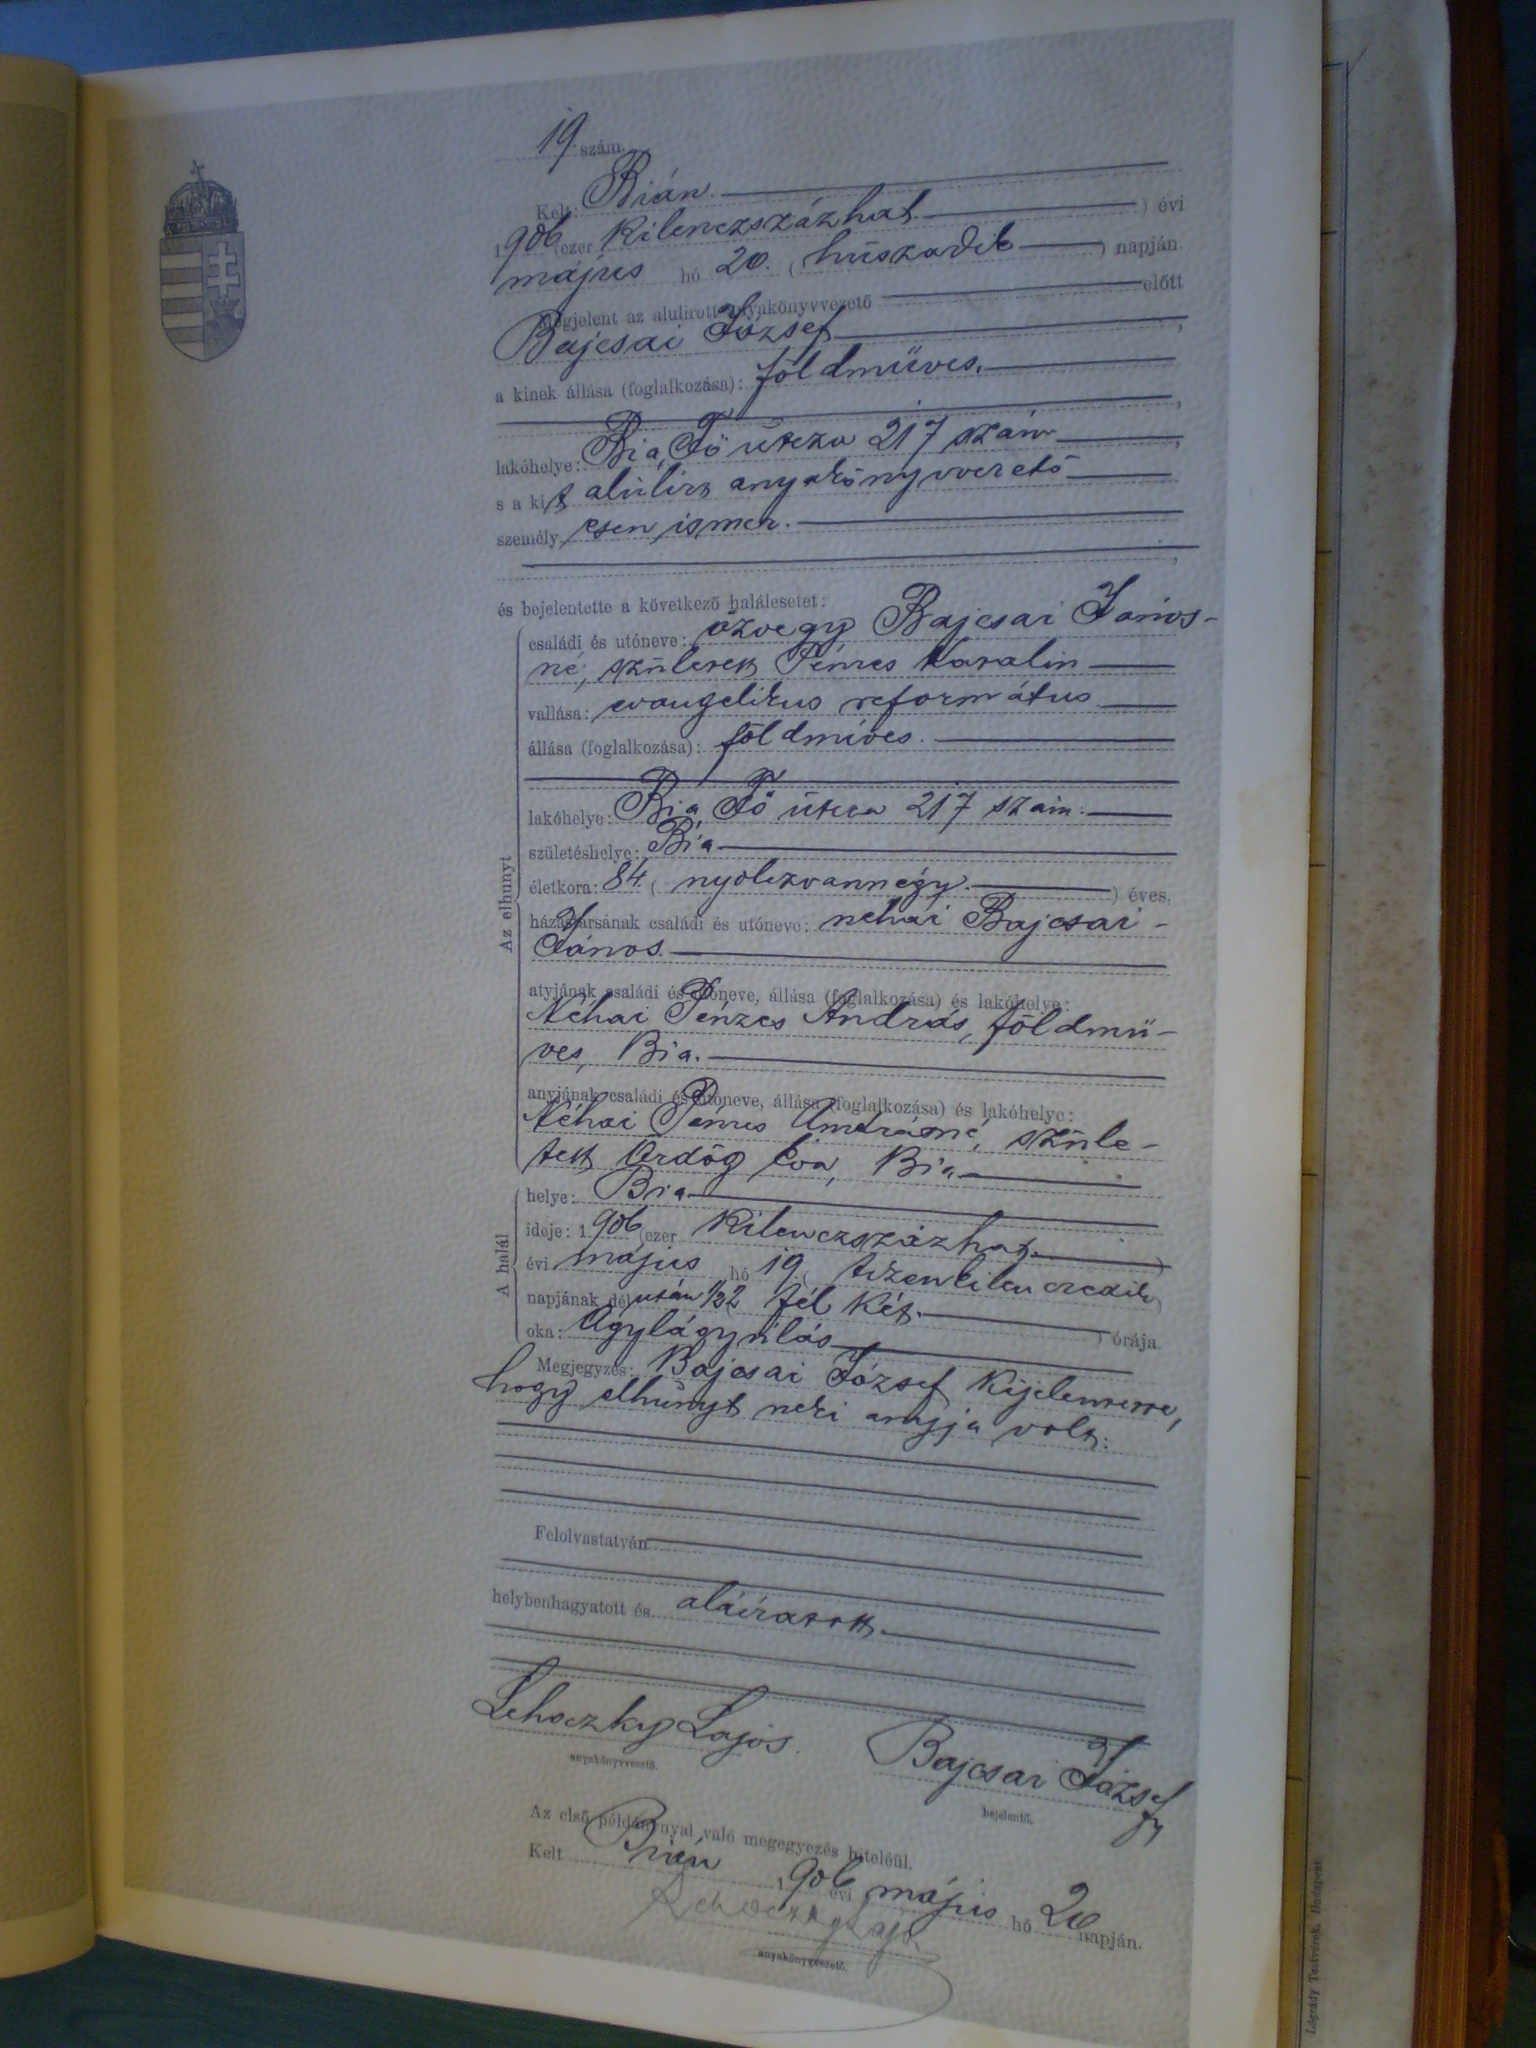 19 szám.
Kelt: Bián.
1906 (ezer kilenczszázhat ) évi
május hó 20. ( húszadik ) napján
megjelent az alulirott anyakönyvvezető előtt
Bajcsai József,
a kinek állása (foglalkozása): földműves.
lakóhelye: Bia, Fő útcza 217 szám,
s a kit alúlirt anyakönyvvezető
személyesen ismer.
és bejelentette a következő halálesetet:
Az elhunyt
családi és utóneve: özvegy Bajcsai János-
né, született Pénzes Katalin
vallása: evangelikus református
állása (foglalkozása): földmíves.
lakóhelye: Bia, Fő útcza 217 szám.
születéshelye: Bia
életkora: 84 ( nyolczvannégy. ) éves,
házastársának családi és utóneve: néhai Bajcsai-
János.
atyjának családi és utóneve, állása (foglalkozása) és lakóhelye:
Néhai Pénzes András, földmű-
ves, Bia.
anyjának családi és utóneve, állása (foglalkozása) és lakóhelye:
Néhai Pénzes Andrásné, szüle-
tett Ördög Éva, Bia,
A halál
helye: Bia
ideje: 1906 (ezer kilenczszázhat )
évi május hó 19 ( tizenkilenczedik )
napjának délután 1/2 2 fél két. ) órája.
oka: Agylágyulás
Megjegyzés: Bajcsai József kijelentette,
hogy elhúnyt neki anyja volt.
Felolvastatván
helybenhagyatott és aláíratott.
Lehoczky Lajos. Bajcsai József
anyakönyvvezető. bejelentő.
Az első példánynyal való megegyezés hiteléül.
Kelt Bián 1906 évi május hó 20 napján.
Lehoczky Lajos
anyakönyvvezető.
Légrády Testvérek, Budapest.